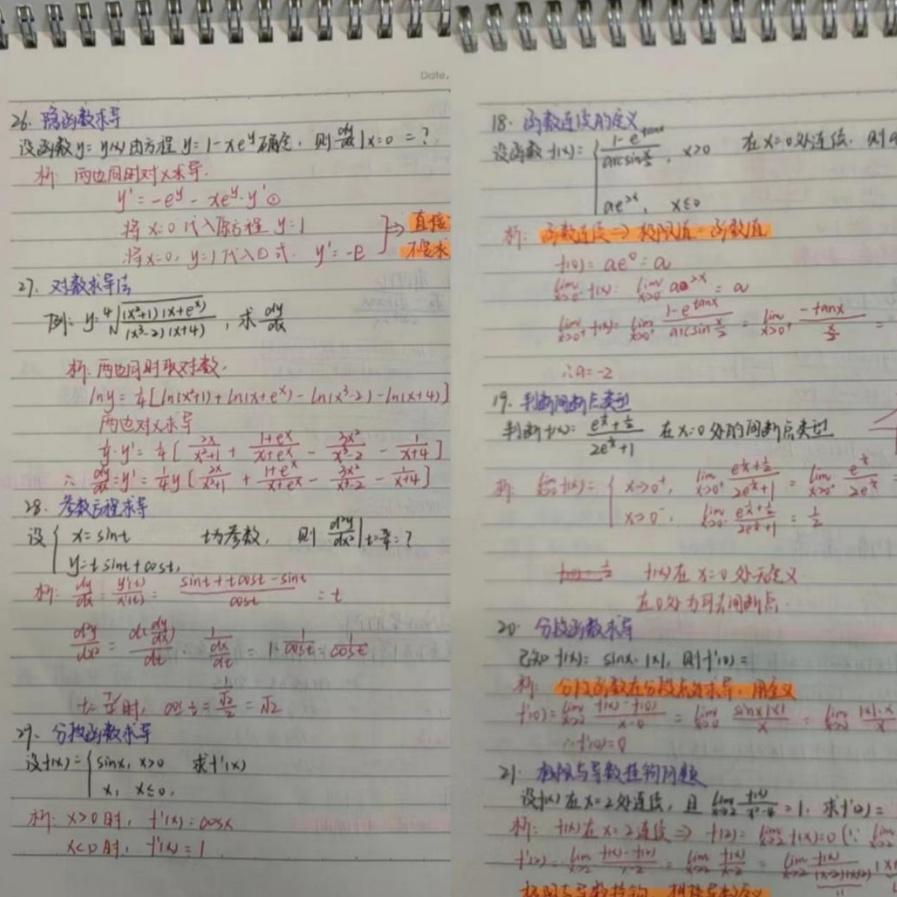 Date.
26. 隐函数求导
设函数y=y(x)由方程 y=1-xe^y 确定, 则 dy/dx|x=0 =?
析: 两边同时对x求导.
y'=-e^y-xe^y·y' ①
将x=0代入原方程 y=1
将x=0, y=1代入①式. y'=-e
⇒ 直接
不必求
27. 对数求导法
例: y=⁴√((x²+1)(x+e^x)/(x³-2)(x+4)), 求 dy/dx
析: 两边同时取对数.
lny=1/4[ln(x²+1)+ln(x+e^x)-ln(x³-2)-ln(x+4)]
两边对x求导
1/y·y'=1/4[2x/(x²+1)+(1+e^x)/(x+e^x)-3x²/(x³-2)-1/(x+4)]
∴ dy/dx=y'=1/4y[2x/(x²+1)+(1+e^x)/(x+e^x)-3x²/(x³-2)-1/(x+4)]
28. 参数方程求导
设 { x=sint t为参数, 则 d²y/dx²|t=π/4=?
y=tsint+cost,
析: dy/dx=y'(t)/x'(t)=(sint+tcost-sint)/cost=t
d²y/dx²=d(dy/dx)/dt·1/(dx/dt)=1·1/cost=1/cost
t=π/4时,
=√2
29. 分段函数求导
设f(x)={ sinx, x>0 求f'(x)
x, x≤0,
析: x>0时, f'(x)=cosx
x<0时, f'(x)=1
18. 函数连续的定义
设函数f(x)={ (1-e^tanx)/(arcsin x/2), x>0 在x=0处连续, 则a
ae^2x, x≤0
析: 函数连续⇒极限值=函数值
f(0)=ae^0=a
lim x→0⁻ f(x)=lim x→0⁻ ae^2x=a
lim x→0⁺ f(x)=lim x→0⁺ (1-e^tanx)/(arcsin x/2)=lim x→0⁺ (-tanx)/(x/2)=
∴a=-2
19. 判断间断点类型
判断f(x)=(e^1/x+1/2)/(2e^1/x+1) 在x=0处的间断点类型
析: f(x)={ x→0⁺, lim x→0⁺ (e^1/x+1/2)/(2e^1/x+1)=lim x→0⁺ e^1/x/2e^1/x
x→0⁻, lim x→0⁻ (e^1/x+1/2)/(2e^1/x+1)=1/2
f(x)在x=0处无定义
在0处为可去间断点.
20. 分段函数求导
已知f(x)=sinx·|x|, 则f'(0)=
析: 分段函数在分段点处求导, 用定义
f'(0)=lim x→0 (f(x)-f(0))/(x-0)=lim x→0 sinx|x|/x=lim x→0 |x|·x
∴f'(0)=0
21. 极限与导数挂钩问题
设f(x)在x=2处连续, 且 lim x→2 f(x)/(x²-4)=1. 求f'(2)=
析: f(x)在x=2连续⇒f(2)=lim x→2 f(x)=0(∵ lim
f'(2)=lim x→2 (f(x)-f(2))/(x-2)=lim x→2 f(x)/(x-2)=lim x→2 f(x)/(x-2)(x+2)·(x+